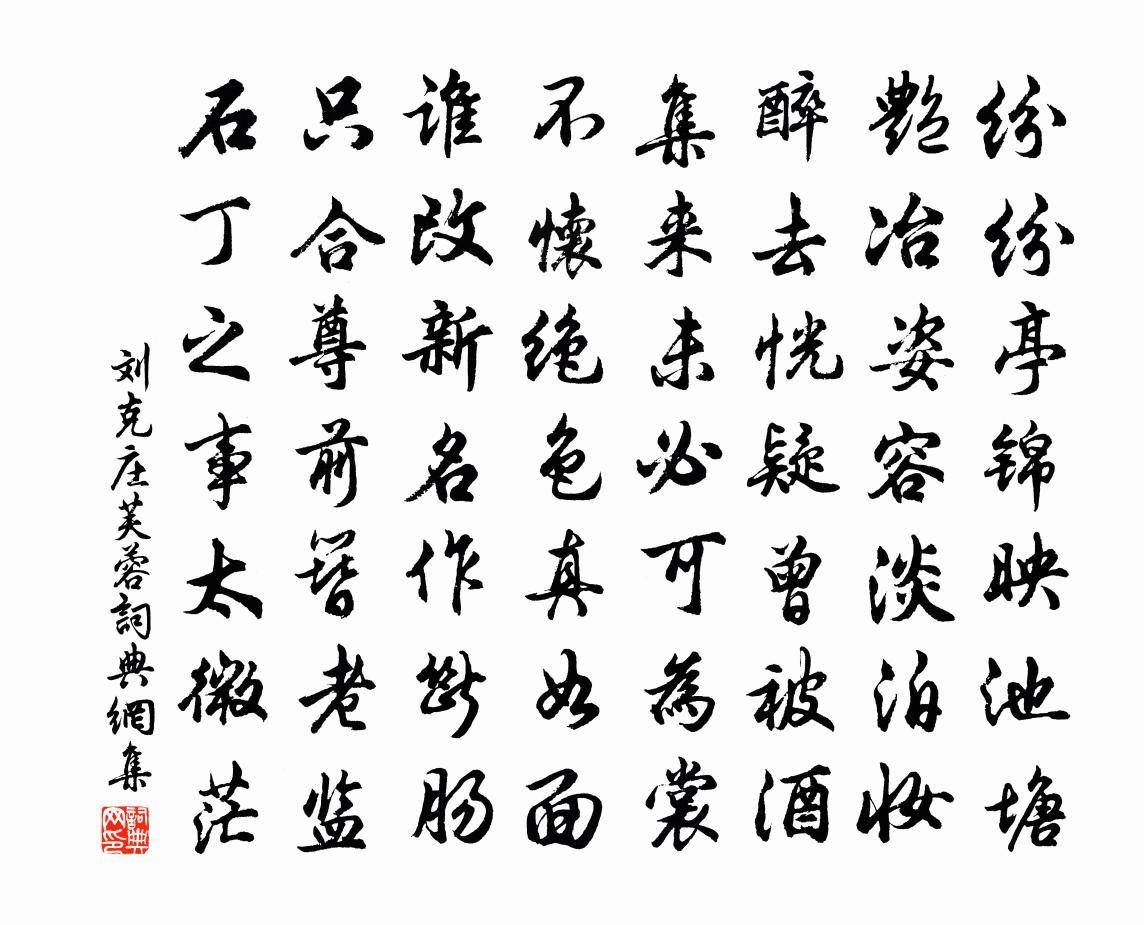 纷纷亭锦映池塘
艷冶姿容淡泊妆
醉去恍疑曾被酒
集来未必可為裳
不懷绝色真如面
谁改新名作斷肠
只合尊前簪老监
石丁之事太微茫
刘克庄芙蓉詞典網集
詞典网印